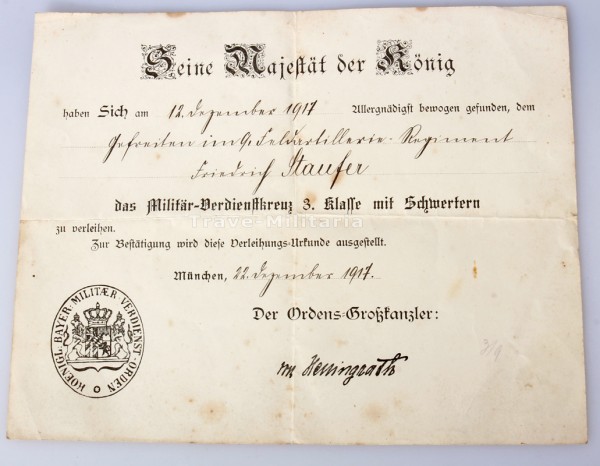 Seine Majestät der König
haben Sich am 12. Dezember 1917 Allergnädigst bewogen gefunden, dem
Gefreiten im 9. Feldartillerie-Regiment
Friedrich Staufer
das Militär-Verdienstkreuz 3. Klasse mit Schwertern
Trave-Militaria
zu verleihen.
Zur Bestätigung wird diese Verleihungs-Urkunde ausgestellt.
München, 22. Dezember 1917.
Der Ordens-Großkanzler:
KOENIGL. BAYER. MILITÆR-VERDIENST-ORDEN
von Hellingrath
319